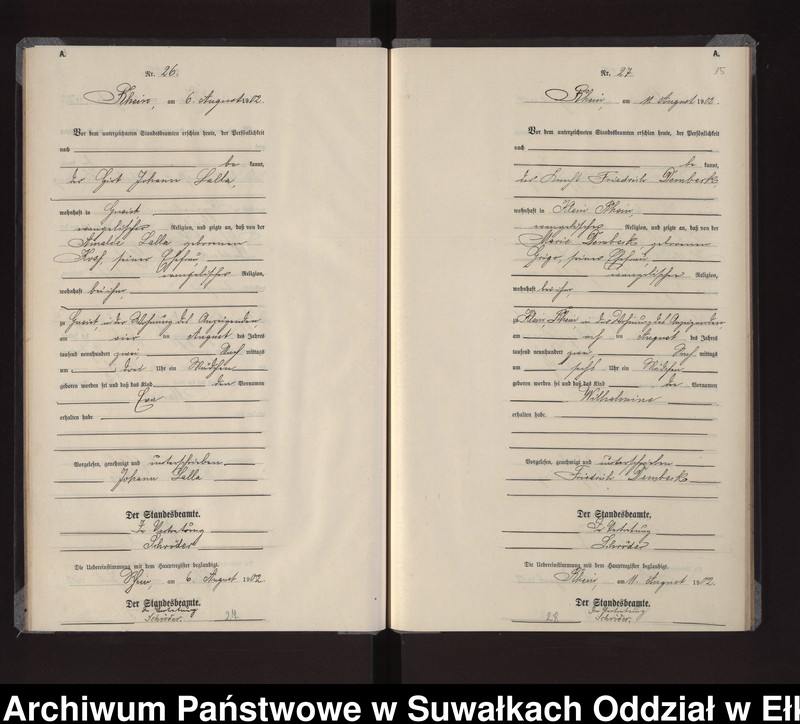 A.
Nr. 26.
Rhein, am 6. August 1902.
Vor dem unterzeichneten Standesbeamten erschien heute, der Persönlichkeit
nach
be kannt,
der Hirt Johann Lalla,
wohnhaft in
evangelischer Religion, und zeigte an, daß von der
Lalla geborenen
seiner Ehefrau
evangelischer Religion,
wohnhaft bei ihm,
zu in der Wohnung des Anzeigenden,
am vier ten August des Jahres
tausend neunhundert zwei Nach mittags
um drei Uhr ein Mädchen
geboren worden sei und daß das Kind den Vornamen
Eva
erhalten habe
Vorgelesen, genehmigt und unterschrieben
Johann Lalla
Der Standesbeamte.
In Vertretung
Schröder
Die Uebereinstimmung mit dem Hauptregister beglaubigt.
Rhein, am 6. August 1902.
Der Standesbeamte.
In Vertretung
Schröder.
A.
15
Nr. 27
Rhein, am 11. August 1902.
Vor dem unterzeichneten Standesbeamten erschien heute, der Persönlichkeit
nach
be kannt,
der Knecht Friedrich Dembeck,
wohnhaft in Klein Rhein,
evangelischer Religion, und zeigte an, daß von der
Marie Dembeck geborenen
seiner Ehefrau,
evangelischer Religion,
wohnhaft bei ihm,
zu Klein Rhein in der Wohnung des Anzeigenden
am ten August des Jahres
tausend neunhundert zwei Nach mittags
um sechs Uhr ein Mädchen
geboren worden sei und daß das Kind den Vornamen
Wilhelmine
erhalten habe.
Vorgelesen, genehmigt und unterschrieben
Friedrich Dembeck
Der Standesbeamte.
In Vertretung
Schröder
Die Uebereinstimmung mit dem Hauptregister beglaubigt.
Rhein, am 11. August 1902.
Der Standesbeamte.
28 In Vertretung
Schröder.
Archiwum Państwowe w Suwałkach Oddział w Eł